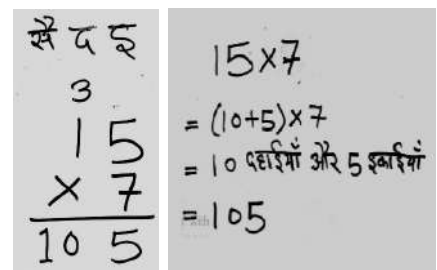 सै द इ
3
15
× 7
105
15×7
= (10+5)×7
= 10 दहाईयाँ और 5 इकाईयाँ
= 105